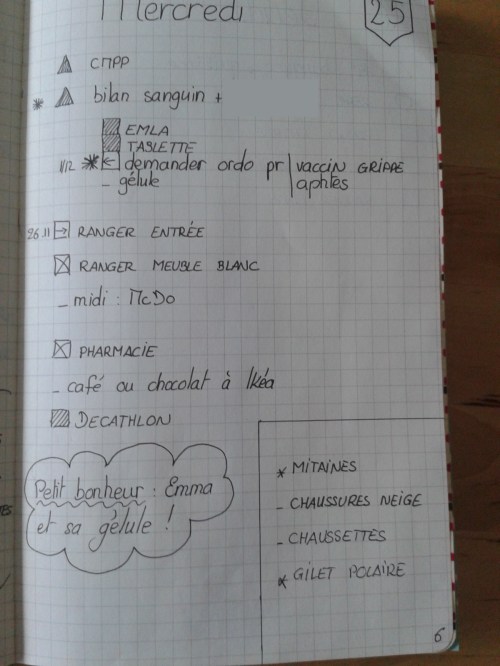 Mercredi 25
CMPP
* bilan sanguin +
EMLA
TABLETTE
1/12 * ← demander ordo pr | vaccin GRIPPE
- gélule | aphtes
26.11 → RANGER ENTRÉE
RANGER MEUBLE BLANC
- midi : McDo
PHARMACIE
- café ou chocolat à Ikéa
DECATHLON
Petit bonheur : Emma
et sa gélule !
* MITAINES
- CHAUSSURES NEIGE
- CHAUSSETTES
* GILET POLAIRE
6